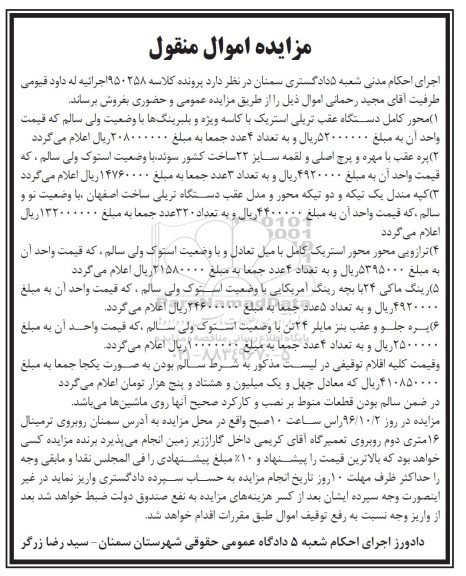 مزایده اموال منقول
اجرای احکام مدنی شعبه ۵دادگستری سمنان در نظر دارد پرونده کلاسه ۹۵۰۲۵۸اجرائیه له داود قیومی
طرفیت آقای مجید رحمانی اموال ذیل را از طریق مزایده عمومی و حضوری بفروش برساند.
۱)محور کامل دستگاه عقب تریلی استریک با کاسه ویژه و بلبرینگ‌ها با وضعیت ولی سالم که قیمت
واحد آن به مبلغ ۵۲۰۰۰۰۰۰ریال و به تعداد ۴عدد جمعا به مبلغ ۲۰۸۰۰۰۰۰۰ریال اعلام می‌گردد
۲)پره عقب با مهره و پرچ اصلی و لقمه سایز ۲۲ساخت کشور سوئد،با وضعیت استوک ولی سالم ، که
قیمت واحد آن به مبلغ ۴۹۲۰۰۰۰ریال و به تعداد ۳عدد جمعا به مبلغ ۱۴۷۶۰۰۰۰ریال اعلام می‌گردد
۳)کپه مندل یک تیکه و دو تیکه محور و مدل عقب دستگاه تریلی ساخت اصفهان ،با وضعیت نو و
سالم ،که قیمت واحد آن به مبلغ ۴۴۰۰۰۰۰ریال و به تعداد۳۲۰عدد جمعا به مبلغ ۱۳۲۰۰۰۰۰۰ریال
اعلام می‌گردد
۴)ترازویی محور محور استریک کامل با میل تعادل و با وضعیت استوک ولی سالم ، که قیمت واحد آن
به مبلغ ۵۳۹۵۰۰۰ریال و به تعداد ۴عدد جمعا به مبلغ ۲۱۵۸۰۰۰۰ریال اعلام می‌گردد
۵)رینگ ماکی ۲۴با بچه رینگ آمریکایی با وضعیت استوک ولی سالم ، که قیمت واحد آن به مبلغ
۴۹۲۰۰۰۰ریال و به تعداد ۵عدد جمعا به مبلغ ۲۴۶۰۰۰۰۰ریال اعلام می‌گردد.
۶)پره جلو و عقب بنز مایلر ۲۴تن با وضعیت استوک ولی سالم ،که قیمت واحد آن به مبلغ
۲۵۰۰۰۰۰ریال و به تعداد ۴عدد جمعا به مبلغ ۱۰۰۰۰۰۰۰ریال اعلام می‌گردد.
وقیمت کلیه اقلام توقیفی در لیست مذکور به شرط سالم بودن به صورت یکجا جمعا به مبلغ
۴۱۰۸۵۰۰۰۰ریال که معادل چهل و یک میلیون و هشتاد و پنج هزار تومان اعلام می‌گردد
در ضمن سالم بودن قطعات منوط بر نصب و کارکرد صحیح آنها روی ماشین‌ها می‌باشد.
مزایده در روز ۹۶/۱۰/۲راس ساعت ۱۰صبح واقع در محل مزایده به آدرس سمنان روبروی ترمینال
۱۶متری دوم روبروی تعمیرگاه آقای کریمی داخل گاراژزیر زمین انجام می‌پذیرد برنده مزایده کسی
خواهد بود که بالاترین قیمت را پیشنهاد و ۱۰٪ مبلغ پیشنهادی را فی المجلس نقدا و مابقی وجه
را حداکثر ظرف مهلت ۱۰روز تاریخ انجام مزایده به حساب سپرده دادگستری واریز نماید در غیر
اینصورت وجه سپرده ایشان بعد از کسر هزینه‌های مزایده به نفع صندوق دولت ضبط خواهد شد بعد
از واریز وجه نسبت به رفع توقیف اموال طبق مقررات اقدام خواهد شد.
دادورز اجرای احکام شعبه ۵ دادگاه عمومی حقوقی شهرستان سمنان- سید رضا زرگر